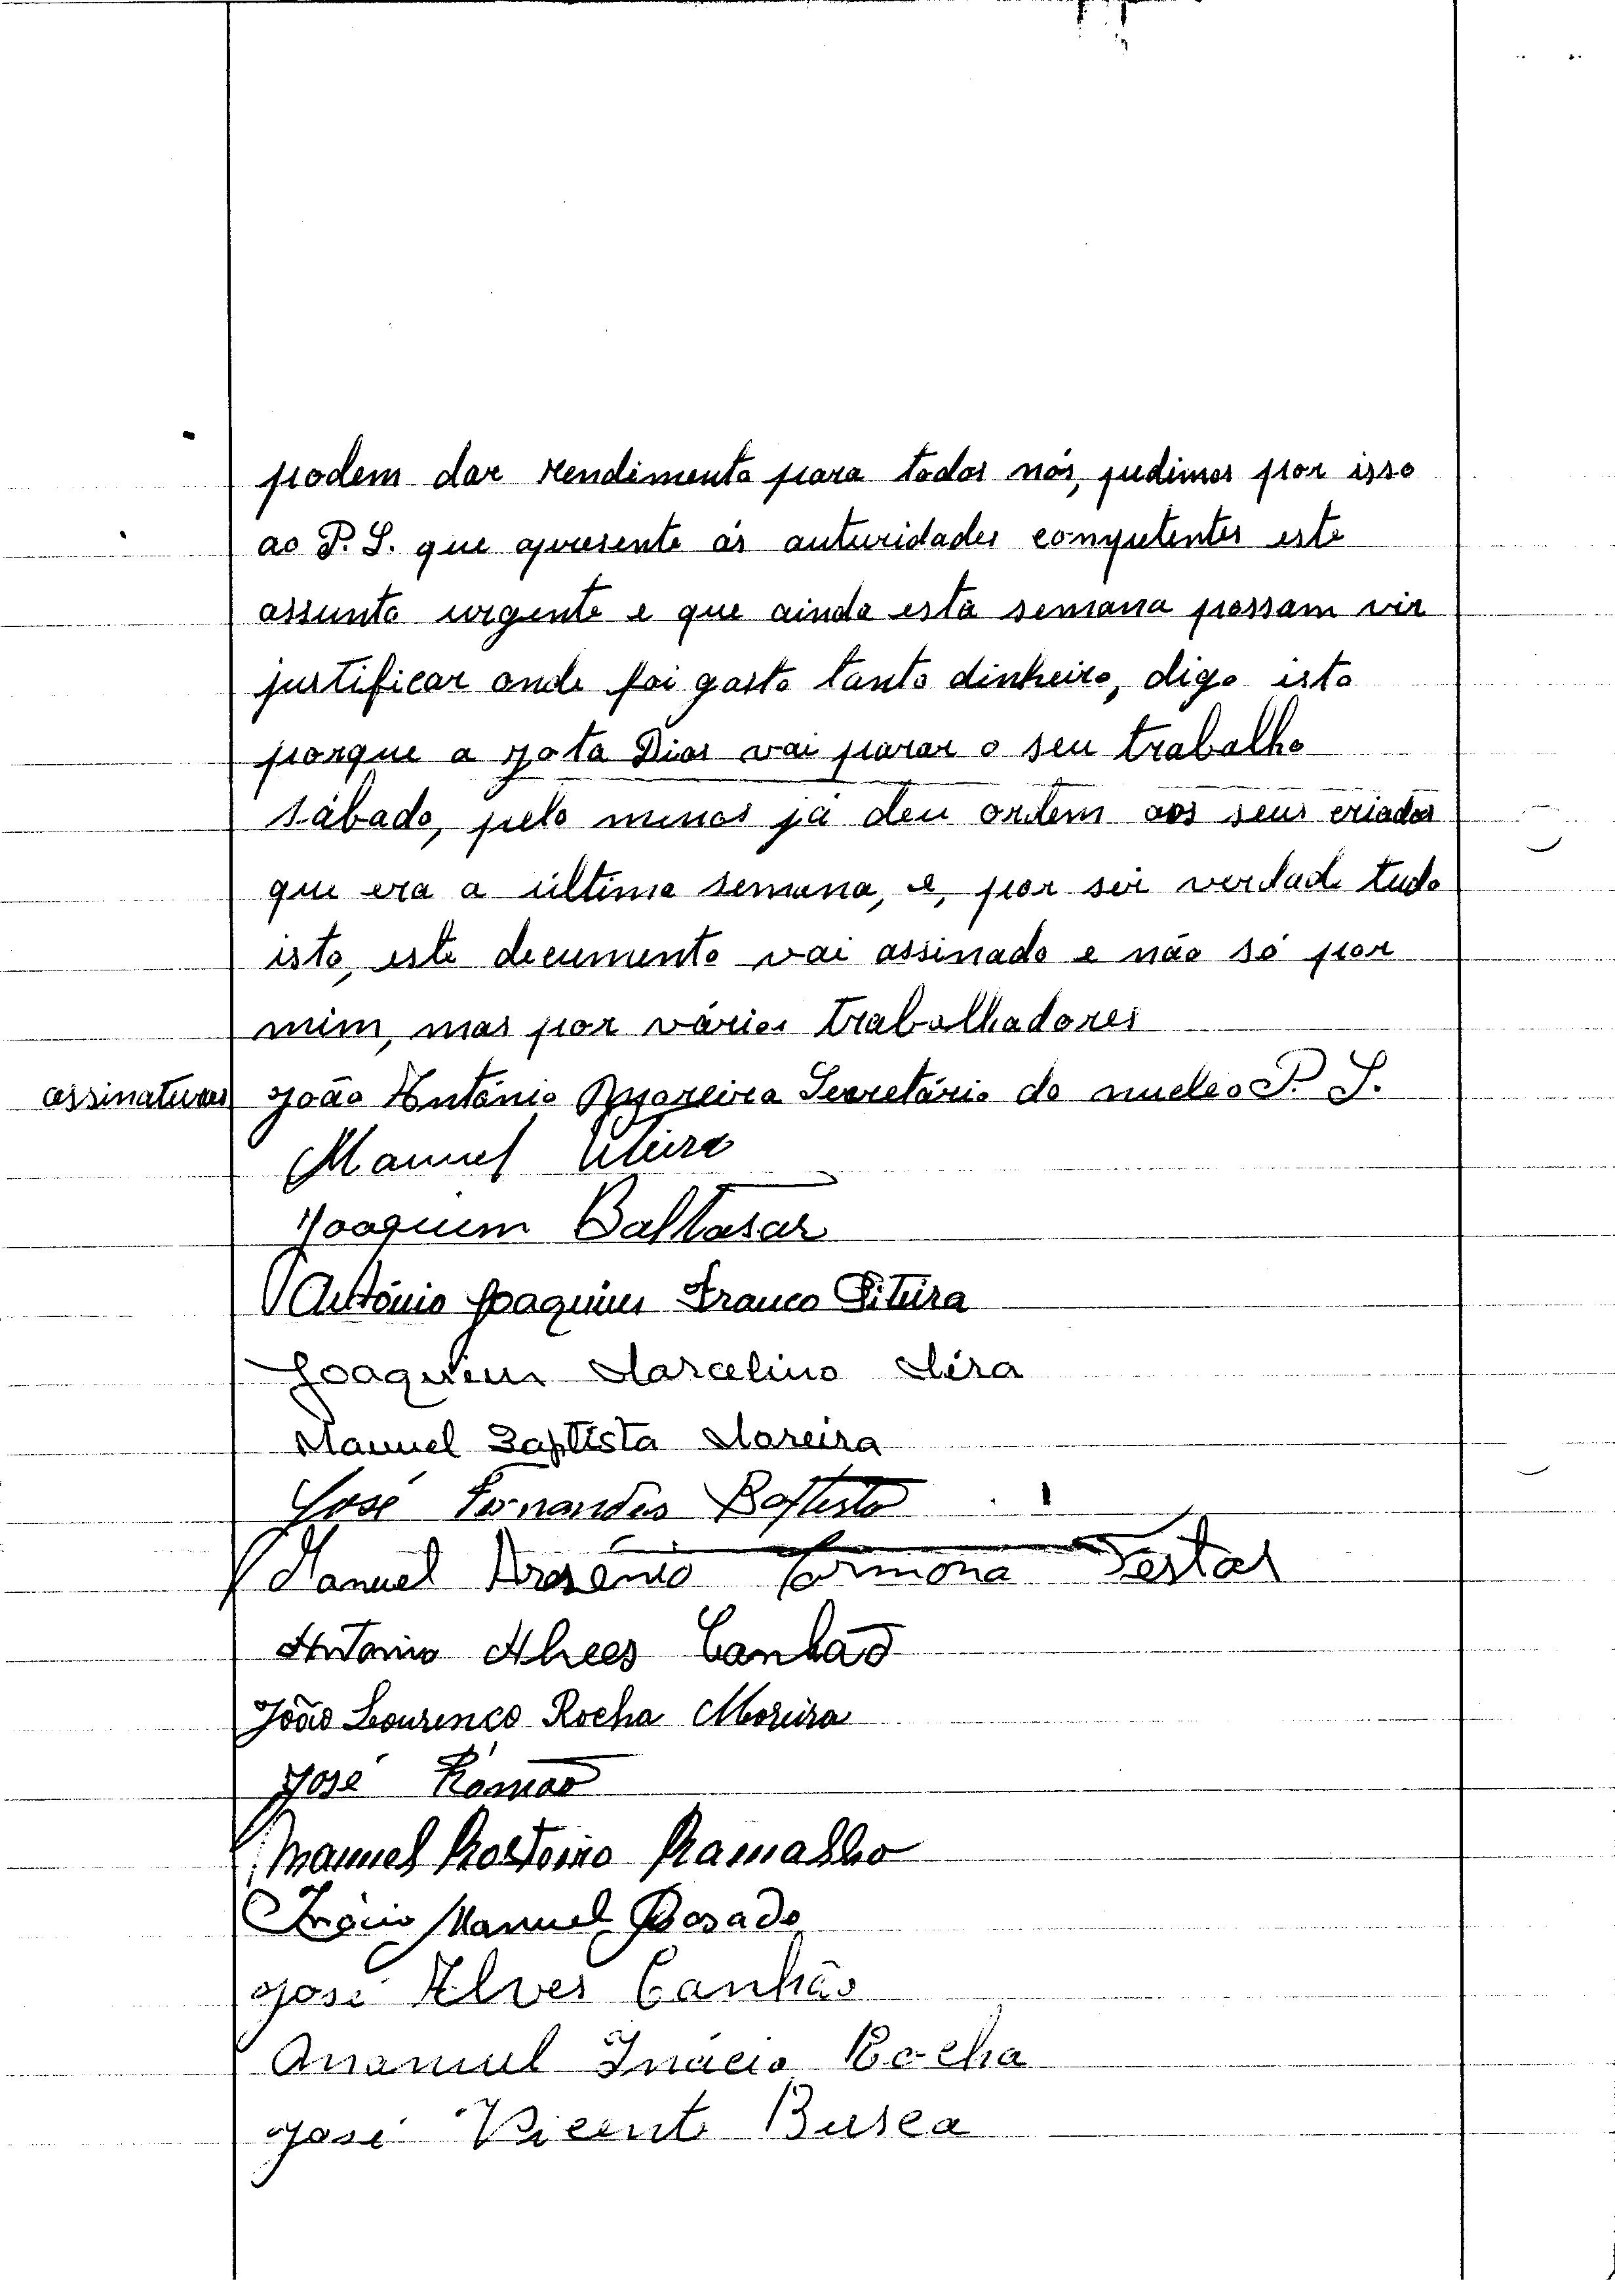 podem dar rendimento para todos nós, pudimos por isso
ao P. S. que apresente ás auturidades computentes este
assunto urgente e que ainda esta semana possam vir
justificar onde foi gasto tanto dinheiro, digo isto
porque a Jota Dias vai parar o seu trabalho
sábado, pelo menos já deu ordem aos seus criados
que era a última semana, e, por ser verdade tudo
isto, este documento vai assinado e não só por
mim, mas por vários trabalhadores
assinaturas João António Moreira Secretário do nucleo P. S.
Manuel
Joaquim Baltasar
António Joaquim Franco Pitéira
Joaquim Marcelino Mira
Manuel Baptista Moreira
José Fernandes Baptista
Manuel Arsenio Carmona
Antonio Alves Canhão
João Lourenço Rocha Moreira
José Romão
Manuel Ramalho
Manuel Rosado
José Alves Canhão
Inácio Rocha
José Vicente Busca